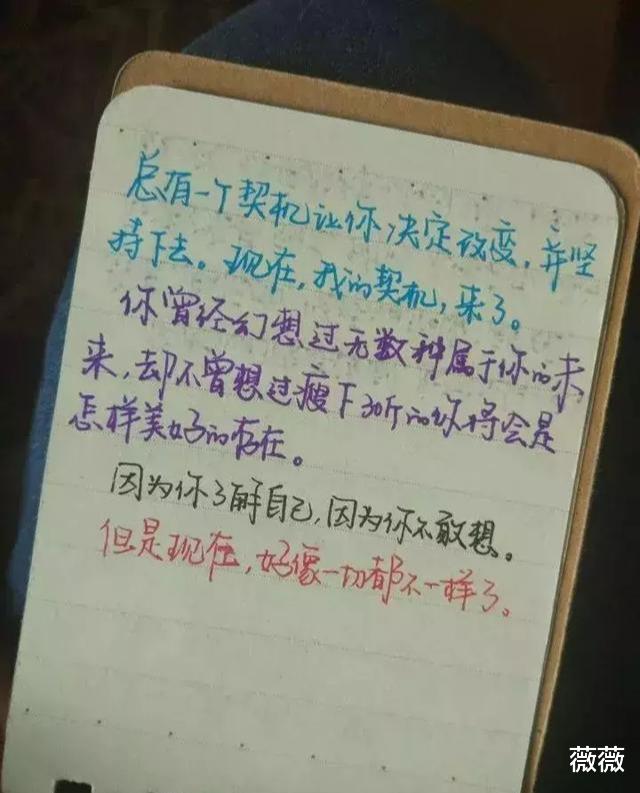 总有一个契机让你决定改变，并坚
持下去。现在，我的契机，来了。
你曾经幻想过无数种属于你的未
来，却不曾想过瘦下30斤的你将会是
怎样美好的存在。
因为你了解自己，因为你不敢想。
但是现在，好像一切都不一样了。
薇薇